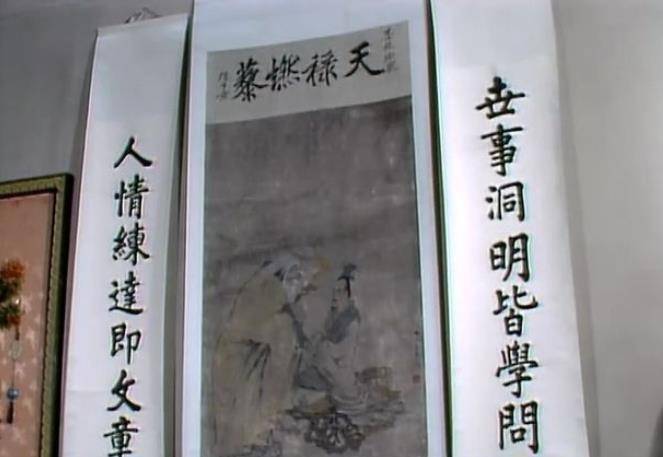 世事洞明皆學問
天禄燃藜
人情練達即文章